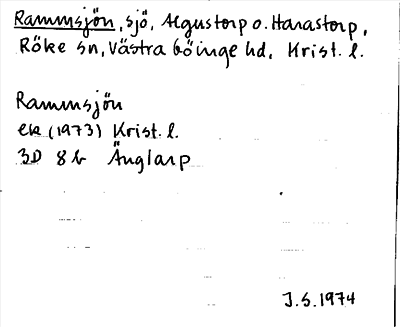 Rammsjön, sjö, Algustorp o. Harastorp,
Röke sn, Västra Göinge hd, Krist. l.
Rammsjön
ek (1973) Krist. l.
3D 8b Änglarp
J.S. 1974